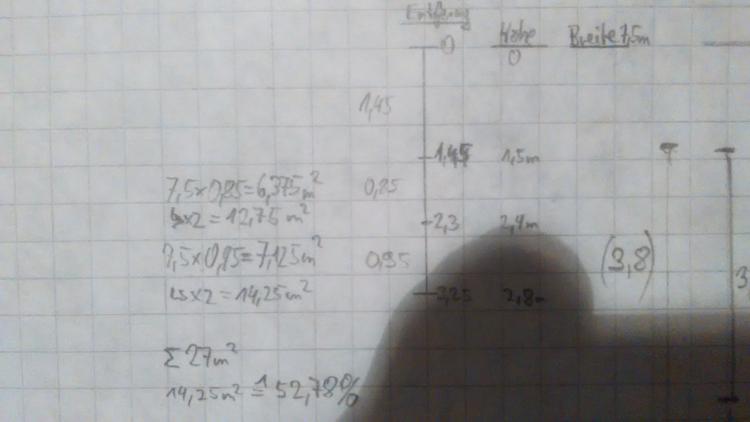 Entfernung Höhe Breite 7,5m
0 0
1,45
1,45 1,5m
7,5x0,85=6,375m² 0,85
↳x2=12,75m² 2,3 2,4m
7,5x0,95=7,125m² 0,95 (3,8)
↳x2=14,25m² 3,25 2,8m
3
Σ27m²
14,25m²≙52,78%